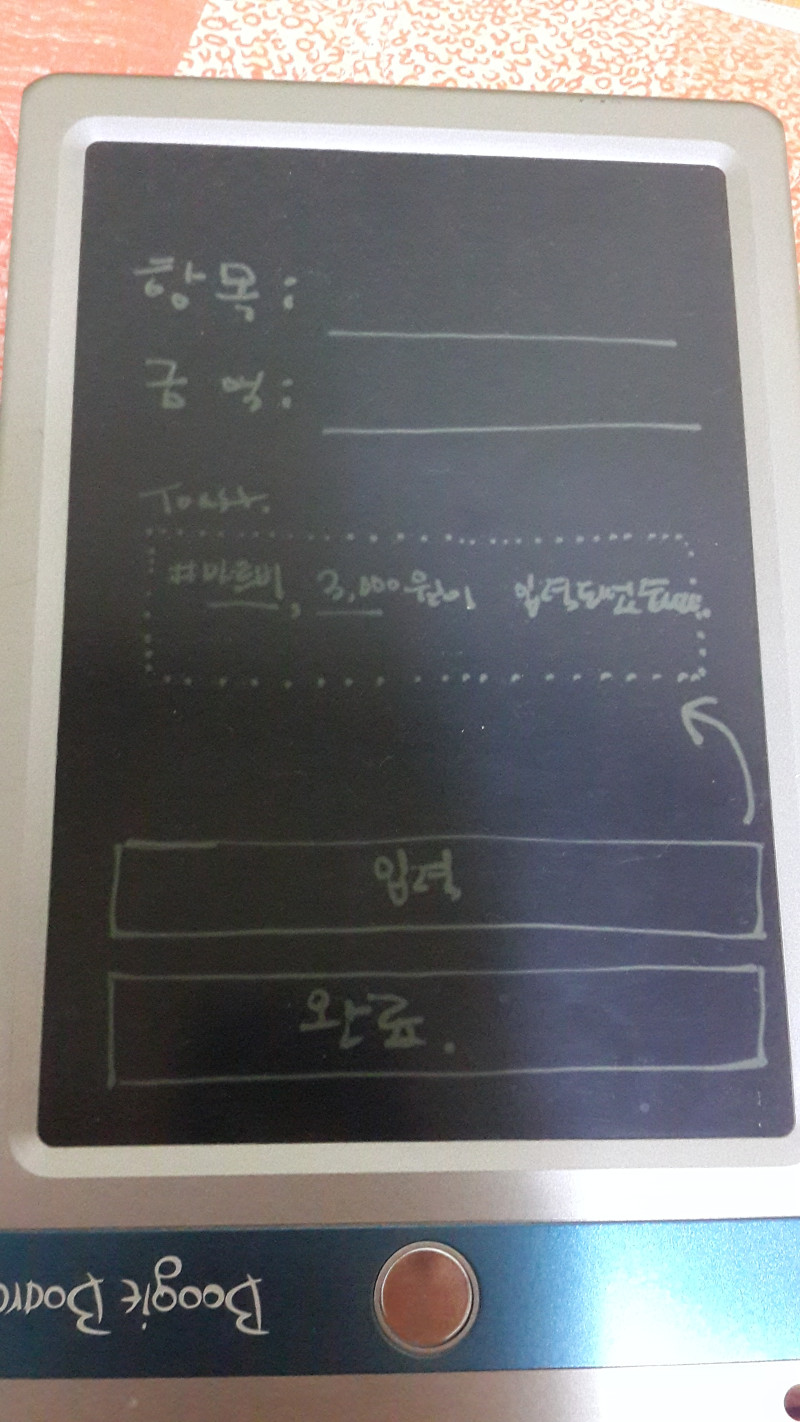 항목:
금액:
Toast.
#마르비, 3,000원이 입력되었습니다.
입력
완료.
Boogie Board